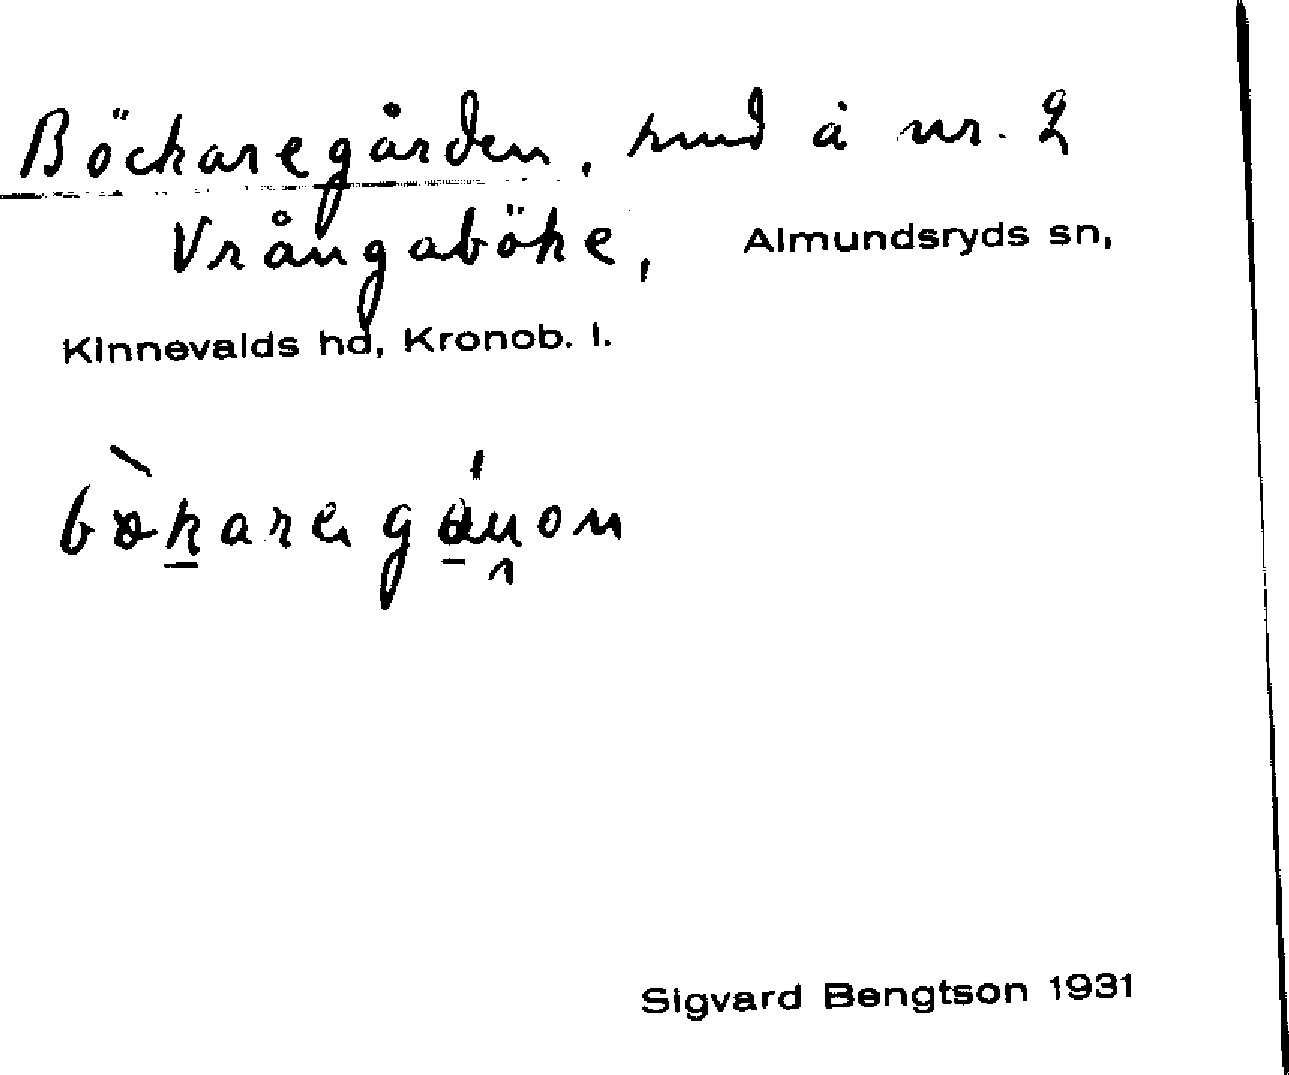 Böckaregården, hmd å nr. 2
Vrångaböke, Almundsryds sn,
Kinnevalds hd, Kronob. l.
Sigvard Bengtson 1931